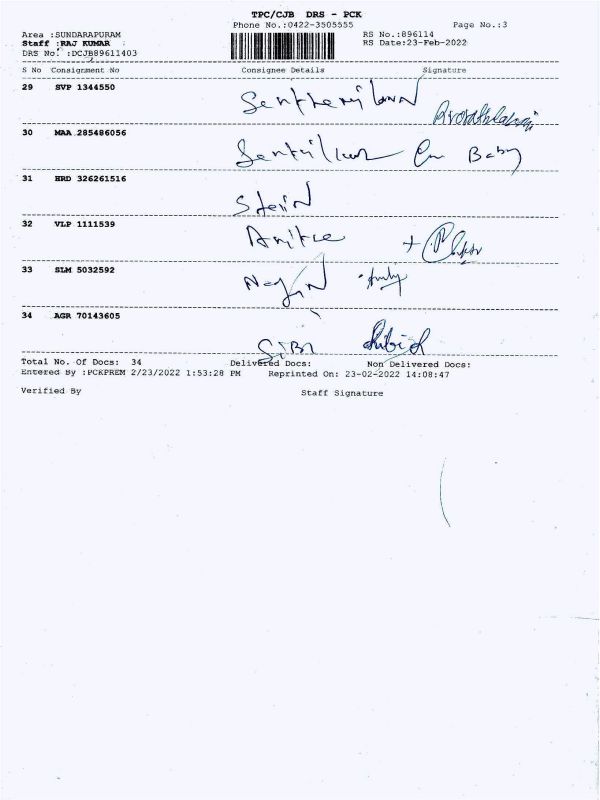 TPC/CJB DRS - PCK
Phone No.:0422-3505555 Page No.:3
Area :SUNDARAPURAM RS No.:896114
Staff :RAJ KUMAR RS Date:23-Feb-2022
DRS No. :DCJB89611403
S No Consignment No Consignee Details Signature
29 SVP 1344550
30 MAA 285486056 Baby
31 HRD 326261516
32 VLP 1111539
33 SLM 5032592
34 AGR 70143605
Total No. Of Docs: 34 Delivered Docs: Non Delivered Docs:
Entered By :PCKPREM 2/23/2022 1:53:28 PM Reprinted On: 23-02-2022 14:08:47
Verified By Staff Signature